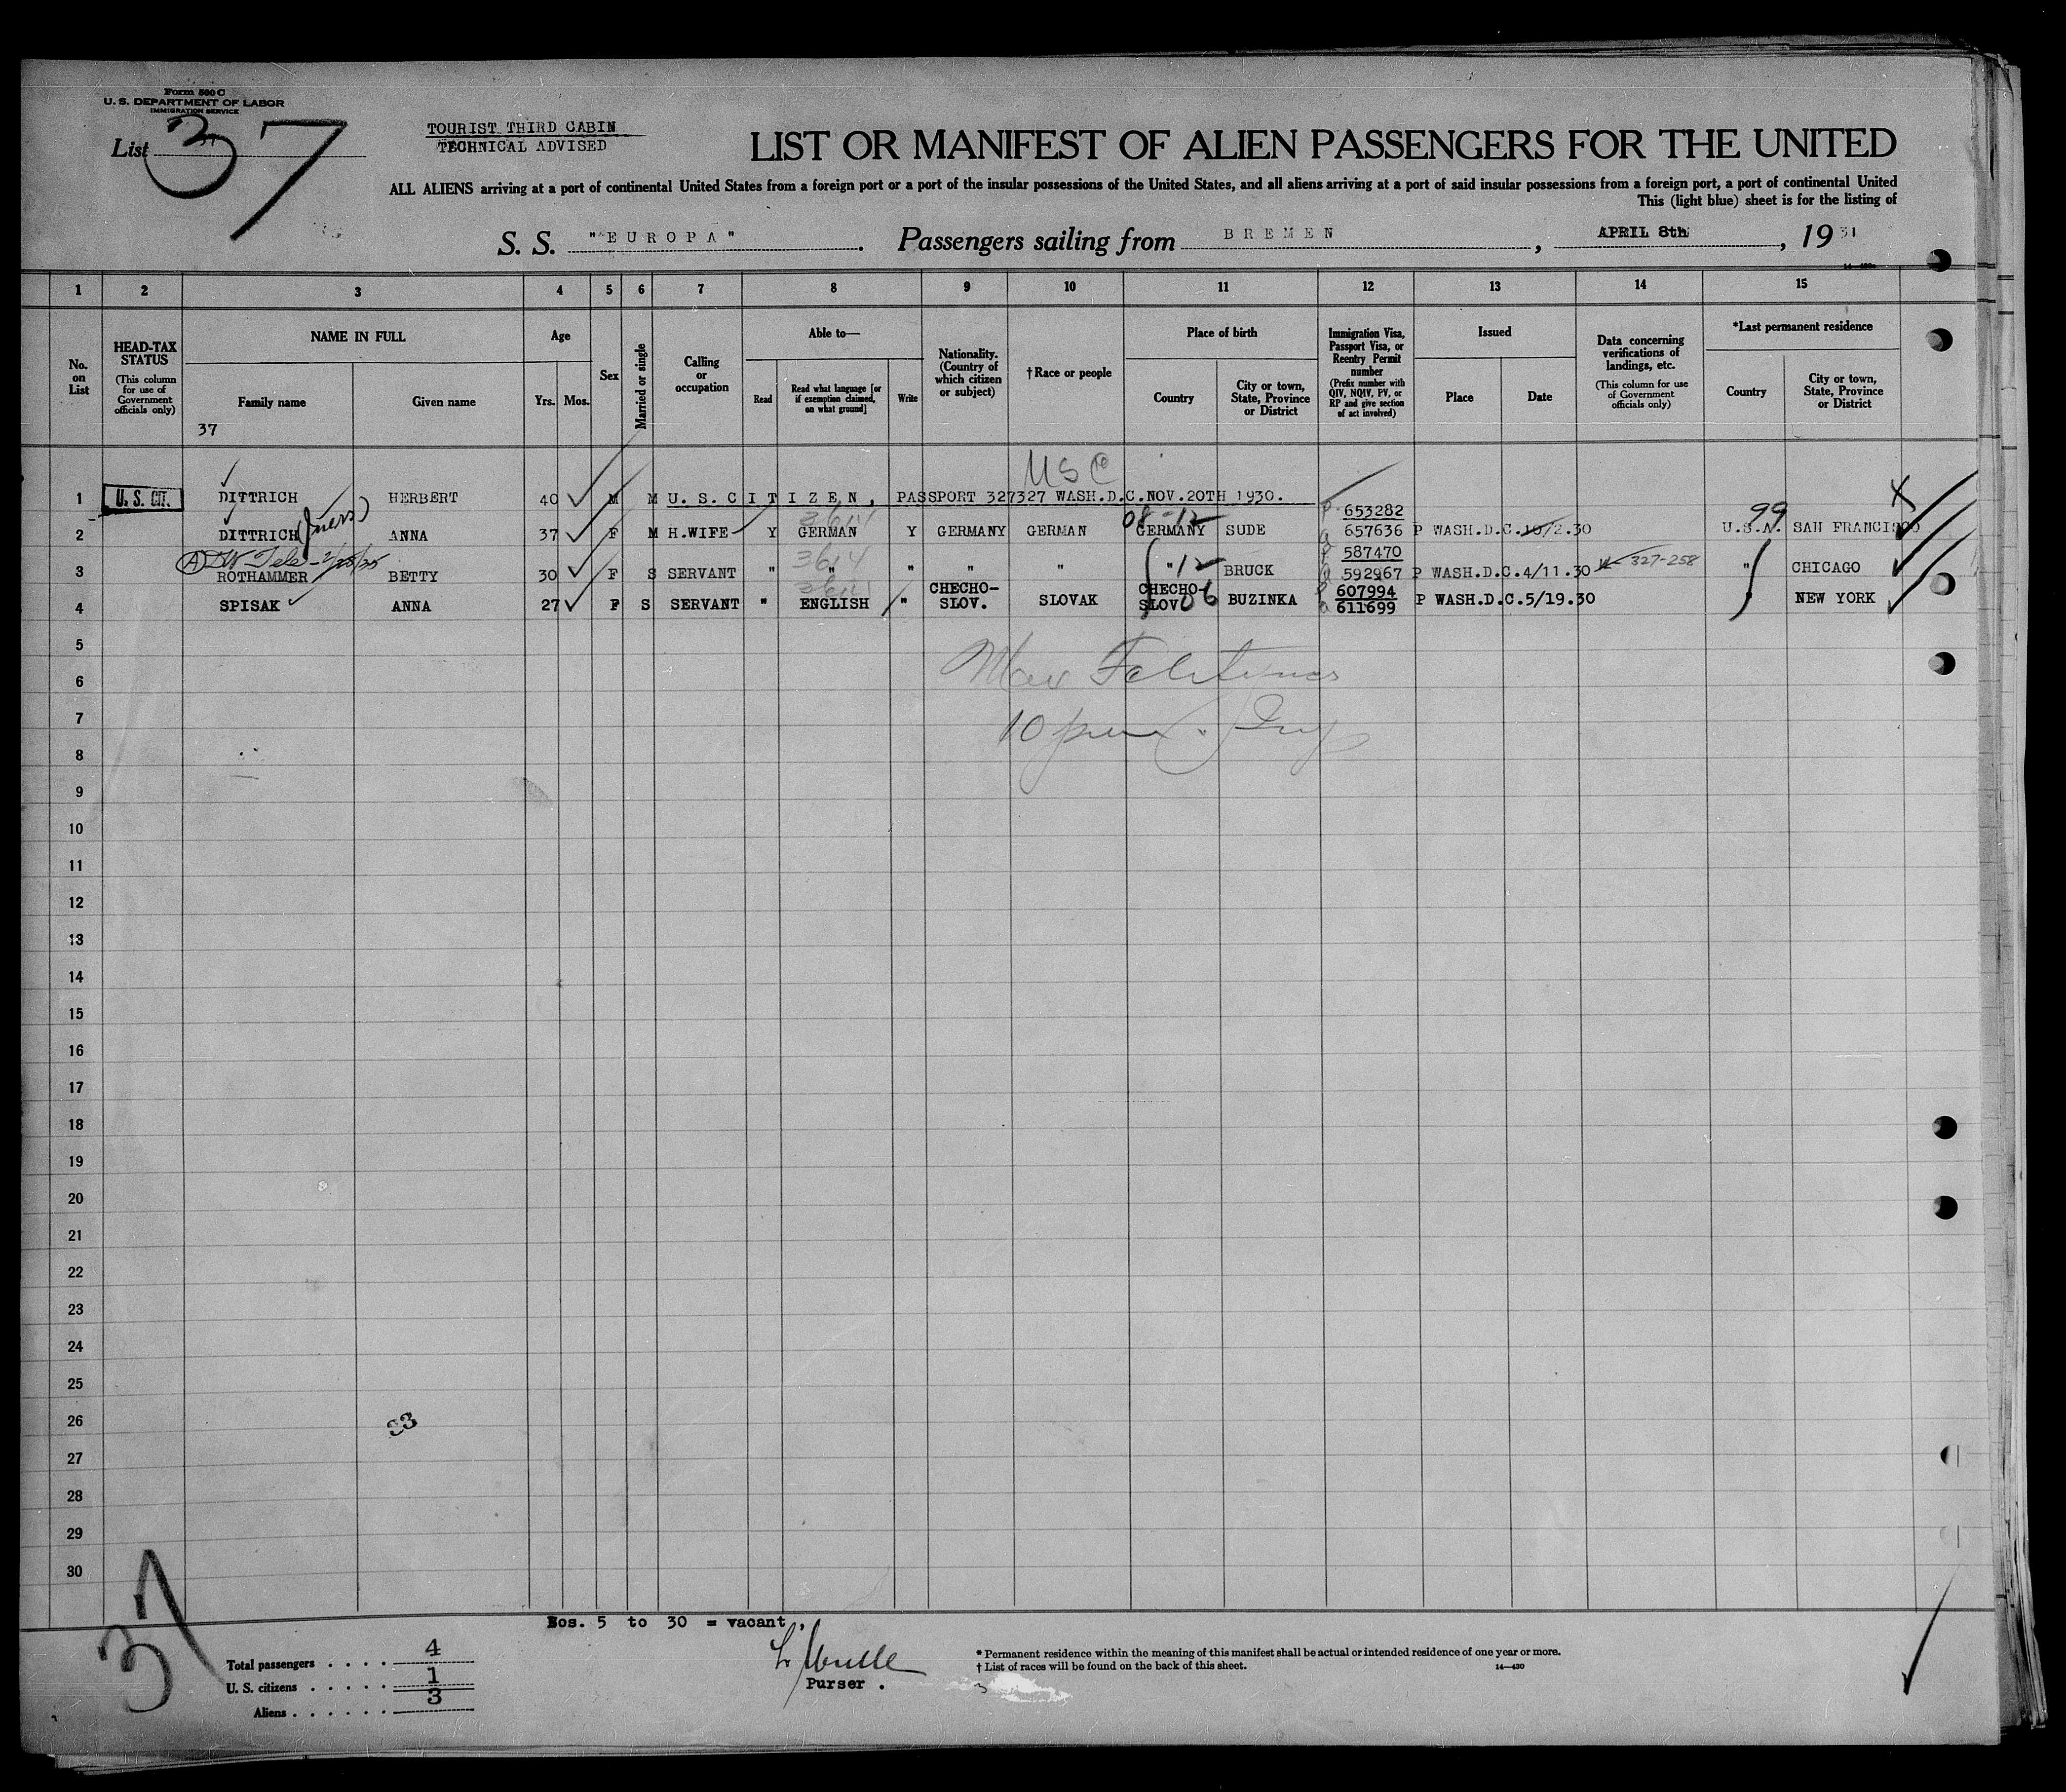 Form 500 C
U. S. DEPARTMENT OF LABOR
IMMIGRATION SERVICE
List 37
TOURIST THIRD CABIN
TECHNICAL ADVISED
LIST OR MANIFEST OF ALIEN PASSENGERS FOR THE UNITED
ALL ALIENS arriving at a port of continental United States from a foreign port or a port of the insular possessions of the United States, and all aliens arriving at a port of said insular possessions from a foreign port, a port of continental United
This (light blue) sheet is for the listing of
S. S. "EUROPA". Passengers sailing from BREMEN, APRIL 8th, 1931
14-430
1 2 3 4 5 6 7 8 9 10 11 12 13 14 15
No. on List
HEAD-TAX STATUS (This column for use of Government officials only)
NAME IN FULL
Family name
Given name
37
Age
Yrs. Mos.
Sex
Married or single
Calling or occupation
Able to—
Read
Read what language [or if exemption claimed, on what ground]
Write
Nationality. (Country of which citizen or subject)
†Race or people
Place of birth
Country
City or town, State, Province or District
Immigration Visa, Passport Visa, or Reentry Permit number (Prefix number with QIV, NQIV, PV, or RP and give section of act involved)
Issued
Place
Date
Data concerning verifications of landings, etc. (This column for use of Government officials only)
*Last permanent residence
Country
City or town, State, Province or District
USC
1 U. S. CIT. DITTRICH HERBERT 40 M M U. S. CITIZEN, PASSPORT 327327 WASH.D.C.NOV.20TH 1930.
3614 08-12 653282 99
2 DITTRICH ANNA 37 F M H.WIFE Y GERMAN Y GERMANY GERMAN GERMANY SUDE 657636 P WASH.D.C.10/2.30 U.S.A. SAN FRANCISCO
3614 587470
3 ROTHAMMER BETTY 30 F S SERVANT " " " " " " 12 BRUCK 592967 P WASH.D.C.4/11.30 327-258 " CHICAGO
3614 607994
4 SPISAK ANNA 27 F S SERVANT " ENGLISH " CHECHO-SLOV. SLOVAK CHECHO-SLOV 06 BUZINKA 611699 P WASH.D.C.5/19.30 " NEW YORK
5
6
7
8
9
10
11
12
13
14
15
16
17
18
19
20
21
22
23
24
25
26 33
27
28
29
30
37
Nos. 5 to 30 = vacant.
Total passengers . . . . 4
U. S. citizens . . . . . 1
Aliens . . . . . . 3
Purser .
* Permanent residence within the meaning of this manifest shall be actual or intended residence of one year or more.
† List of races will be found on the back of this sheet.
14-430